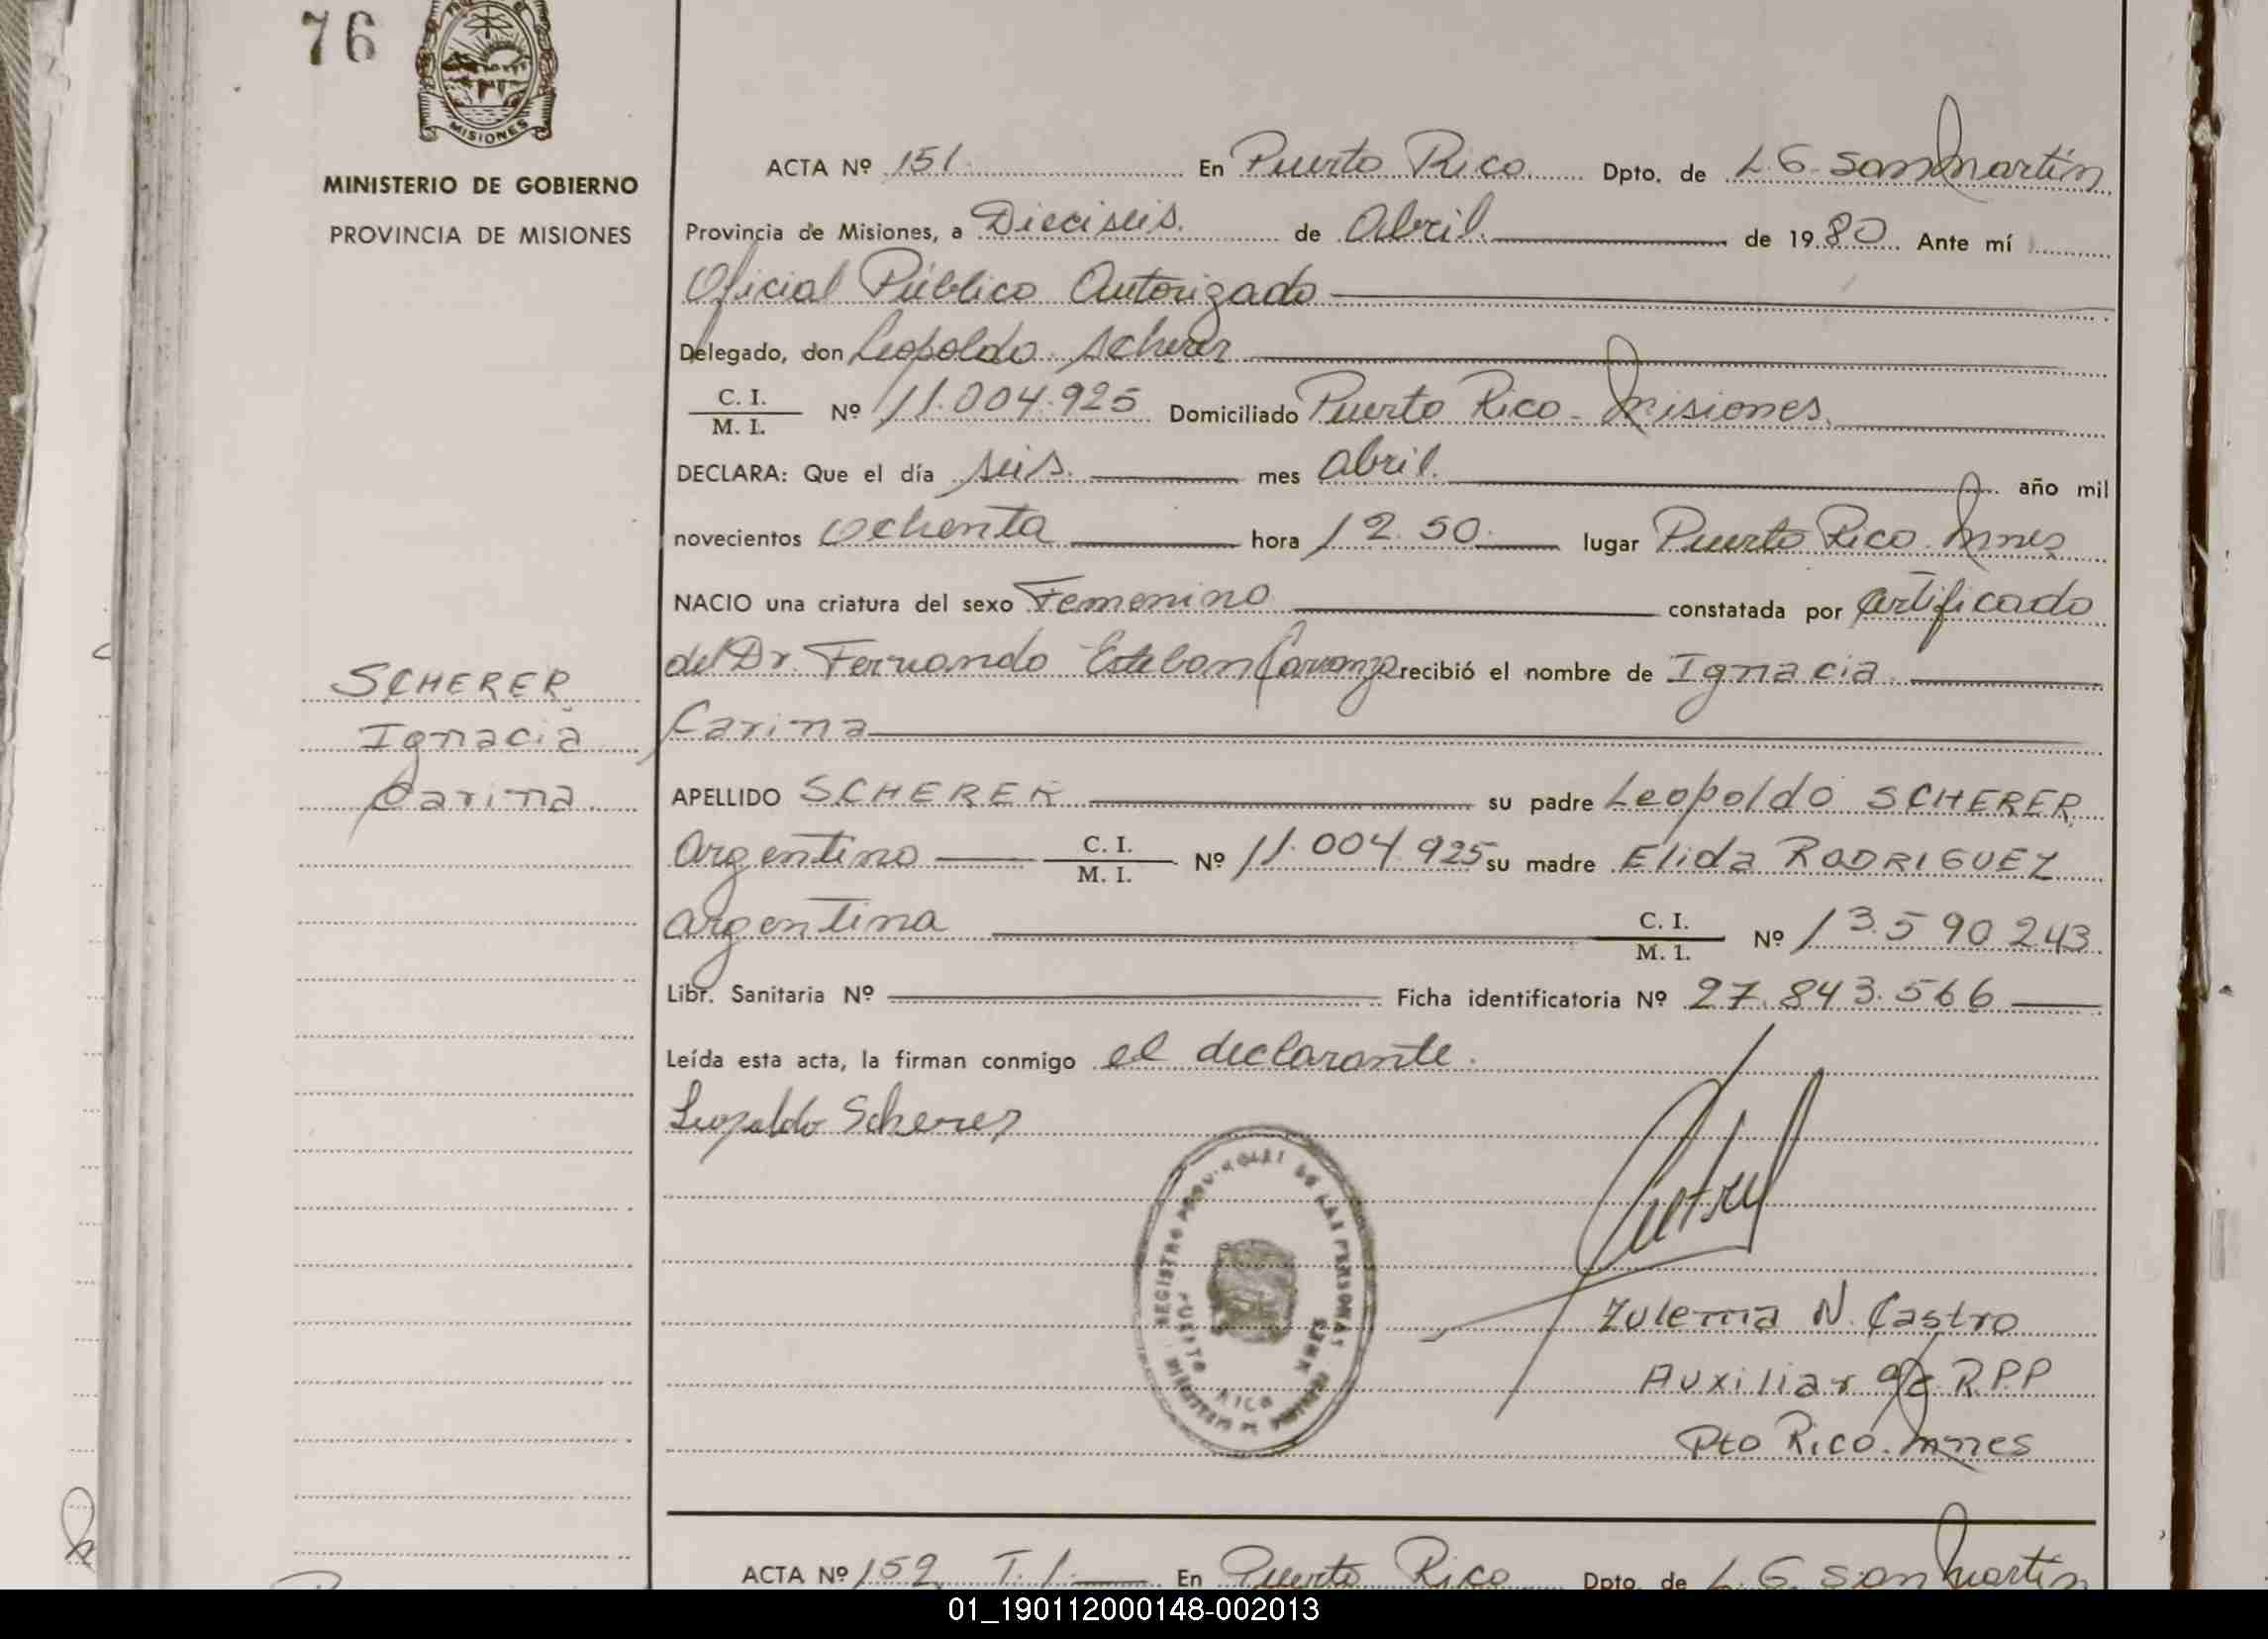 76
MISIONES
MINISTERIO DE GOBIERNO
PROVINCIA DE MISIONES
SCHERER
Ignacia
Carina
ACTA Nº 151. En Puerto Rico. Dpto. de L. G. San Martín
Provincia de Misiones, a Dieciseis. de Abril. de 1980. Ante mí
Oficial Público Autorizado
Delegado, don Leopoldo Scherer
C. I. / M. I. Nº 11.004.925 Domiciliado Puerto Rico - Misiones.
DECLARA: Que el día seis. mes abril. año mil
novecientos ochenta hora 12.50. lugar Puerto Rico. Mnes
NACIO una criatura del sexo Femenino constatada por certificado
del Dr. Fernando Esteban Carranza recibió el nombre de Ignacia
Carina
APELLIDO SCHERER su padre Leopoldo SCHERER
Argentino C. I. / M. I. Nº 11.004.925 su madre Elida RODRIGUEZ
argentina C. I. / M. I. Nº 13.590.243
Libr. Sanitaria Nº Ficha identificatoria Nº 27.843.566
Leída esta acta, la firman conmigo el declarante.
Leopoldo Scherer
REGISTRO PROVINCIAL DE LAS PERSONAS
PUERTO RICO MNES
Zulema N. Castro
Auxiliar a/c R.P.P
Pto Rico. Mnes
ACTA Nº 152 T. I. En Puerto Rico Dpto. de L. G. San Martín
01_190112000148-002013